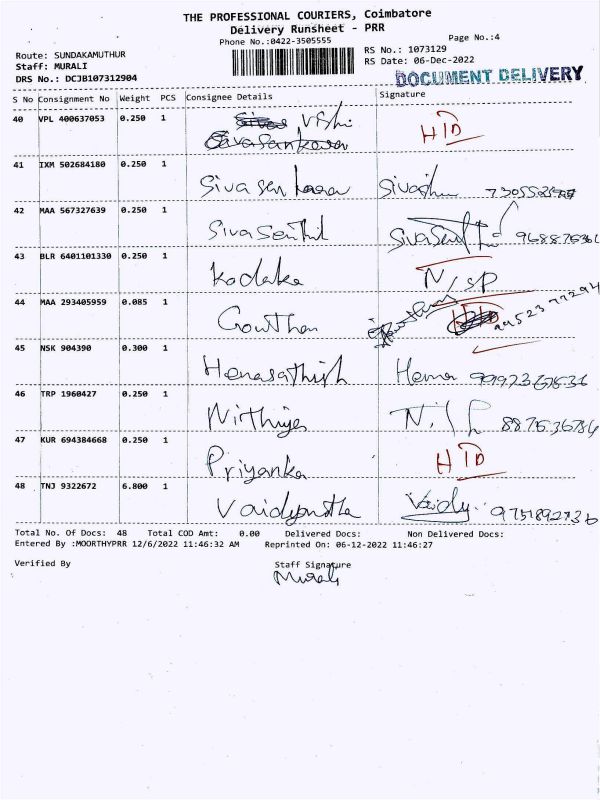 THE PROFESSIONAL COURIERS, Coimbatore
Delivery Runsheet - PRR
Phone No.:0422-3505555
Page No.:4
Route: SUNDAKAMUTHUR
RS No.: 1073129
Staff: MURALI
RS Date: 06-Dec-2022
DRS No.: DCJB107312904
DOCUMENT DELIVERY
S No Consignment No Weight PCS Consignee Details Signature
40 VPL 400637053 0.250 1 Vishi HTD
Sivasankara
41 IXM 502684180 0.250 1
Sivasankara
42 MAA 567327639 0.250 1
Sivasenthil
43 BLR 6401101330 0.250 1
Kodaka N/SP
44 MAA 293405959 0.085 1
Gowthan 9952377294
45 NSK 904390 0.300 1
Hemasathish Hema
46 TRP 1960427 0.250 1
Nirthiya
47 KUR 694384668 0.250 1
Priyanka HTD
48 TNJ 9322672 6.800 1
Vaidyanatha Vaidy.
Total No. Of Docs: 48 Total COD Amt: 0.00 Delivered Docs: Non Delivered Docs:
Entered By :MOORTHYPRR 12/6/2022 11:46:32 AM Reprinted On: 06-12-2022 11:46:27
Verified By Staff Signature
Murali